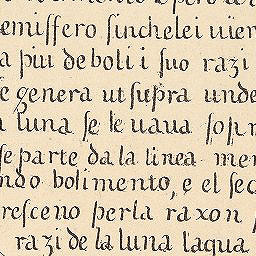 emissero sinchelei uier
a piu deboli i suo razi
e genera ut supra unde
luna se le uaua sopr
se parte da la linea mer
ndo bolimento, e el sec
resceno per la raxon
razi de la luna l'aqua